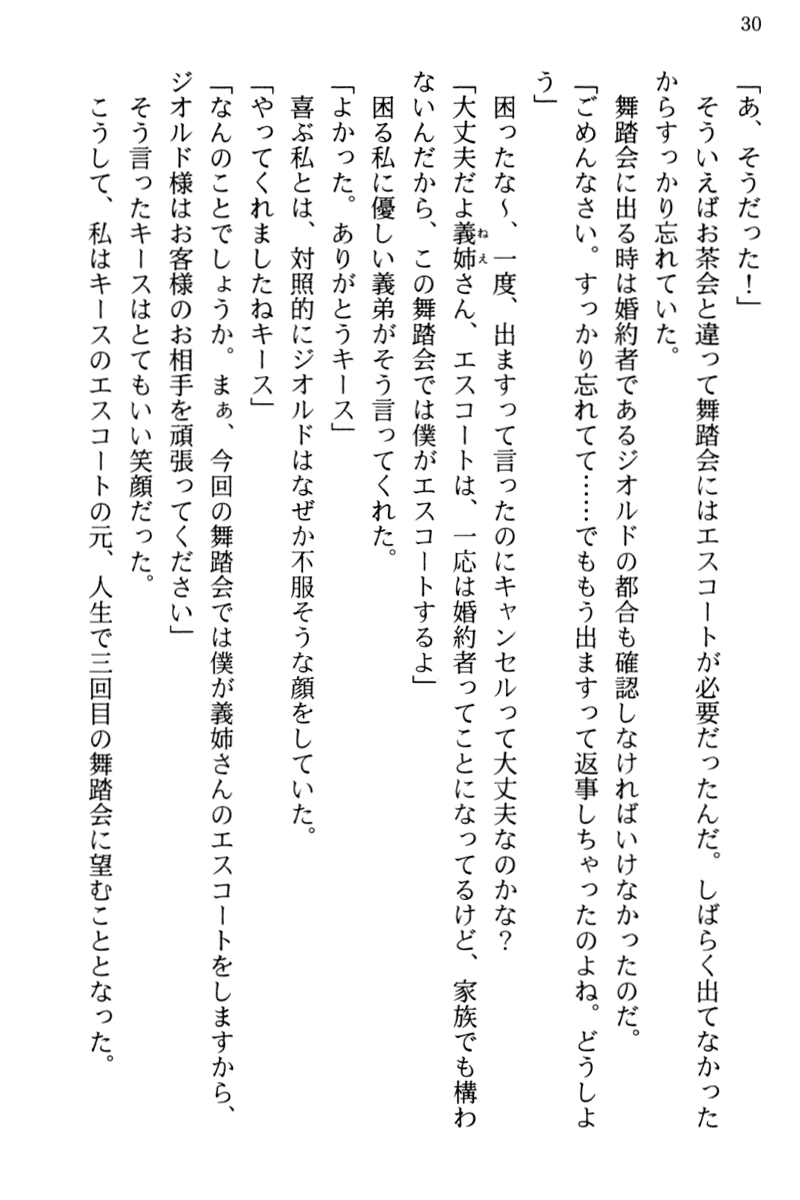 30
「あ、そうだった！」
そういえばお茶会と違って舞踏会にはエスコートが必要だったんだ。しばらく出てなかった
からすっかり忘れていた。
舞踏会に出る時は婚約者であるジオルドの都合も確認しなければいけなかったのだ。
「ごめんなさい。すっかり忘れてて……でももう出ますって返事しちゃったのよね。どうしよ
う」
困ったな〜、一度、出ますって言ったのにキャンセルって大丈夫なのかな？
「大丈夫だよ義姉さん、エスコートは、一応は婚約者ってことになってるけど、家族でも構わ
ねえ
ないんだから、この舞踏会では僕がエスコートするよ」
困る私に優しい義弟がそう言ってくれた。
「よかった。ありがとうキース」
喜ぶ私とは、対照的にジオルドはなぜか不服そうな顔をしていた。
「やってくれましたねキース」
「なんのことでしょうか。まぁ、今回の舞踏会では僕が義姉さんのエスコートをしますから、
ジオルド様はお客様のお相手を頑張ってください」
そう言ったキースはとてもいい笑顔だった。
こうして、私はキースのエスコートの元、人生で三回目の舞踏会に望むこととなった。